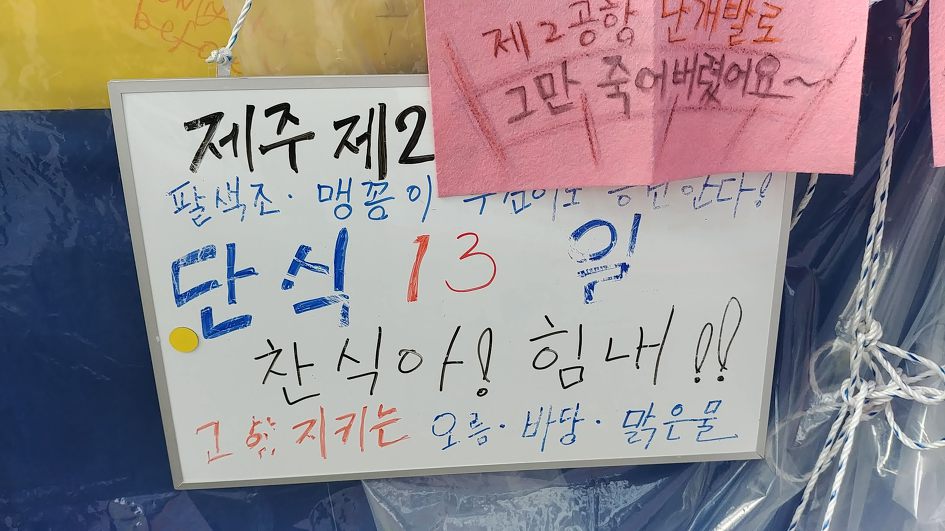 제2공항 난개발로
그만 죽어버렸어요~
제주 제2
팔색조·맹꽁이
단식 13일
찬식아! 힘내!!
지키는 오름·바당·맑은물